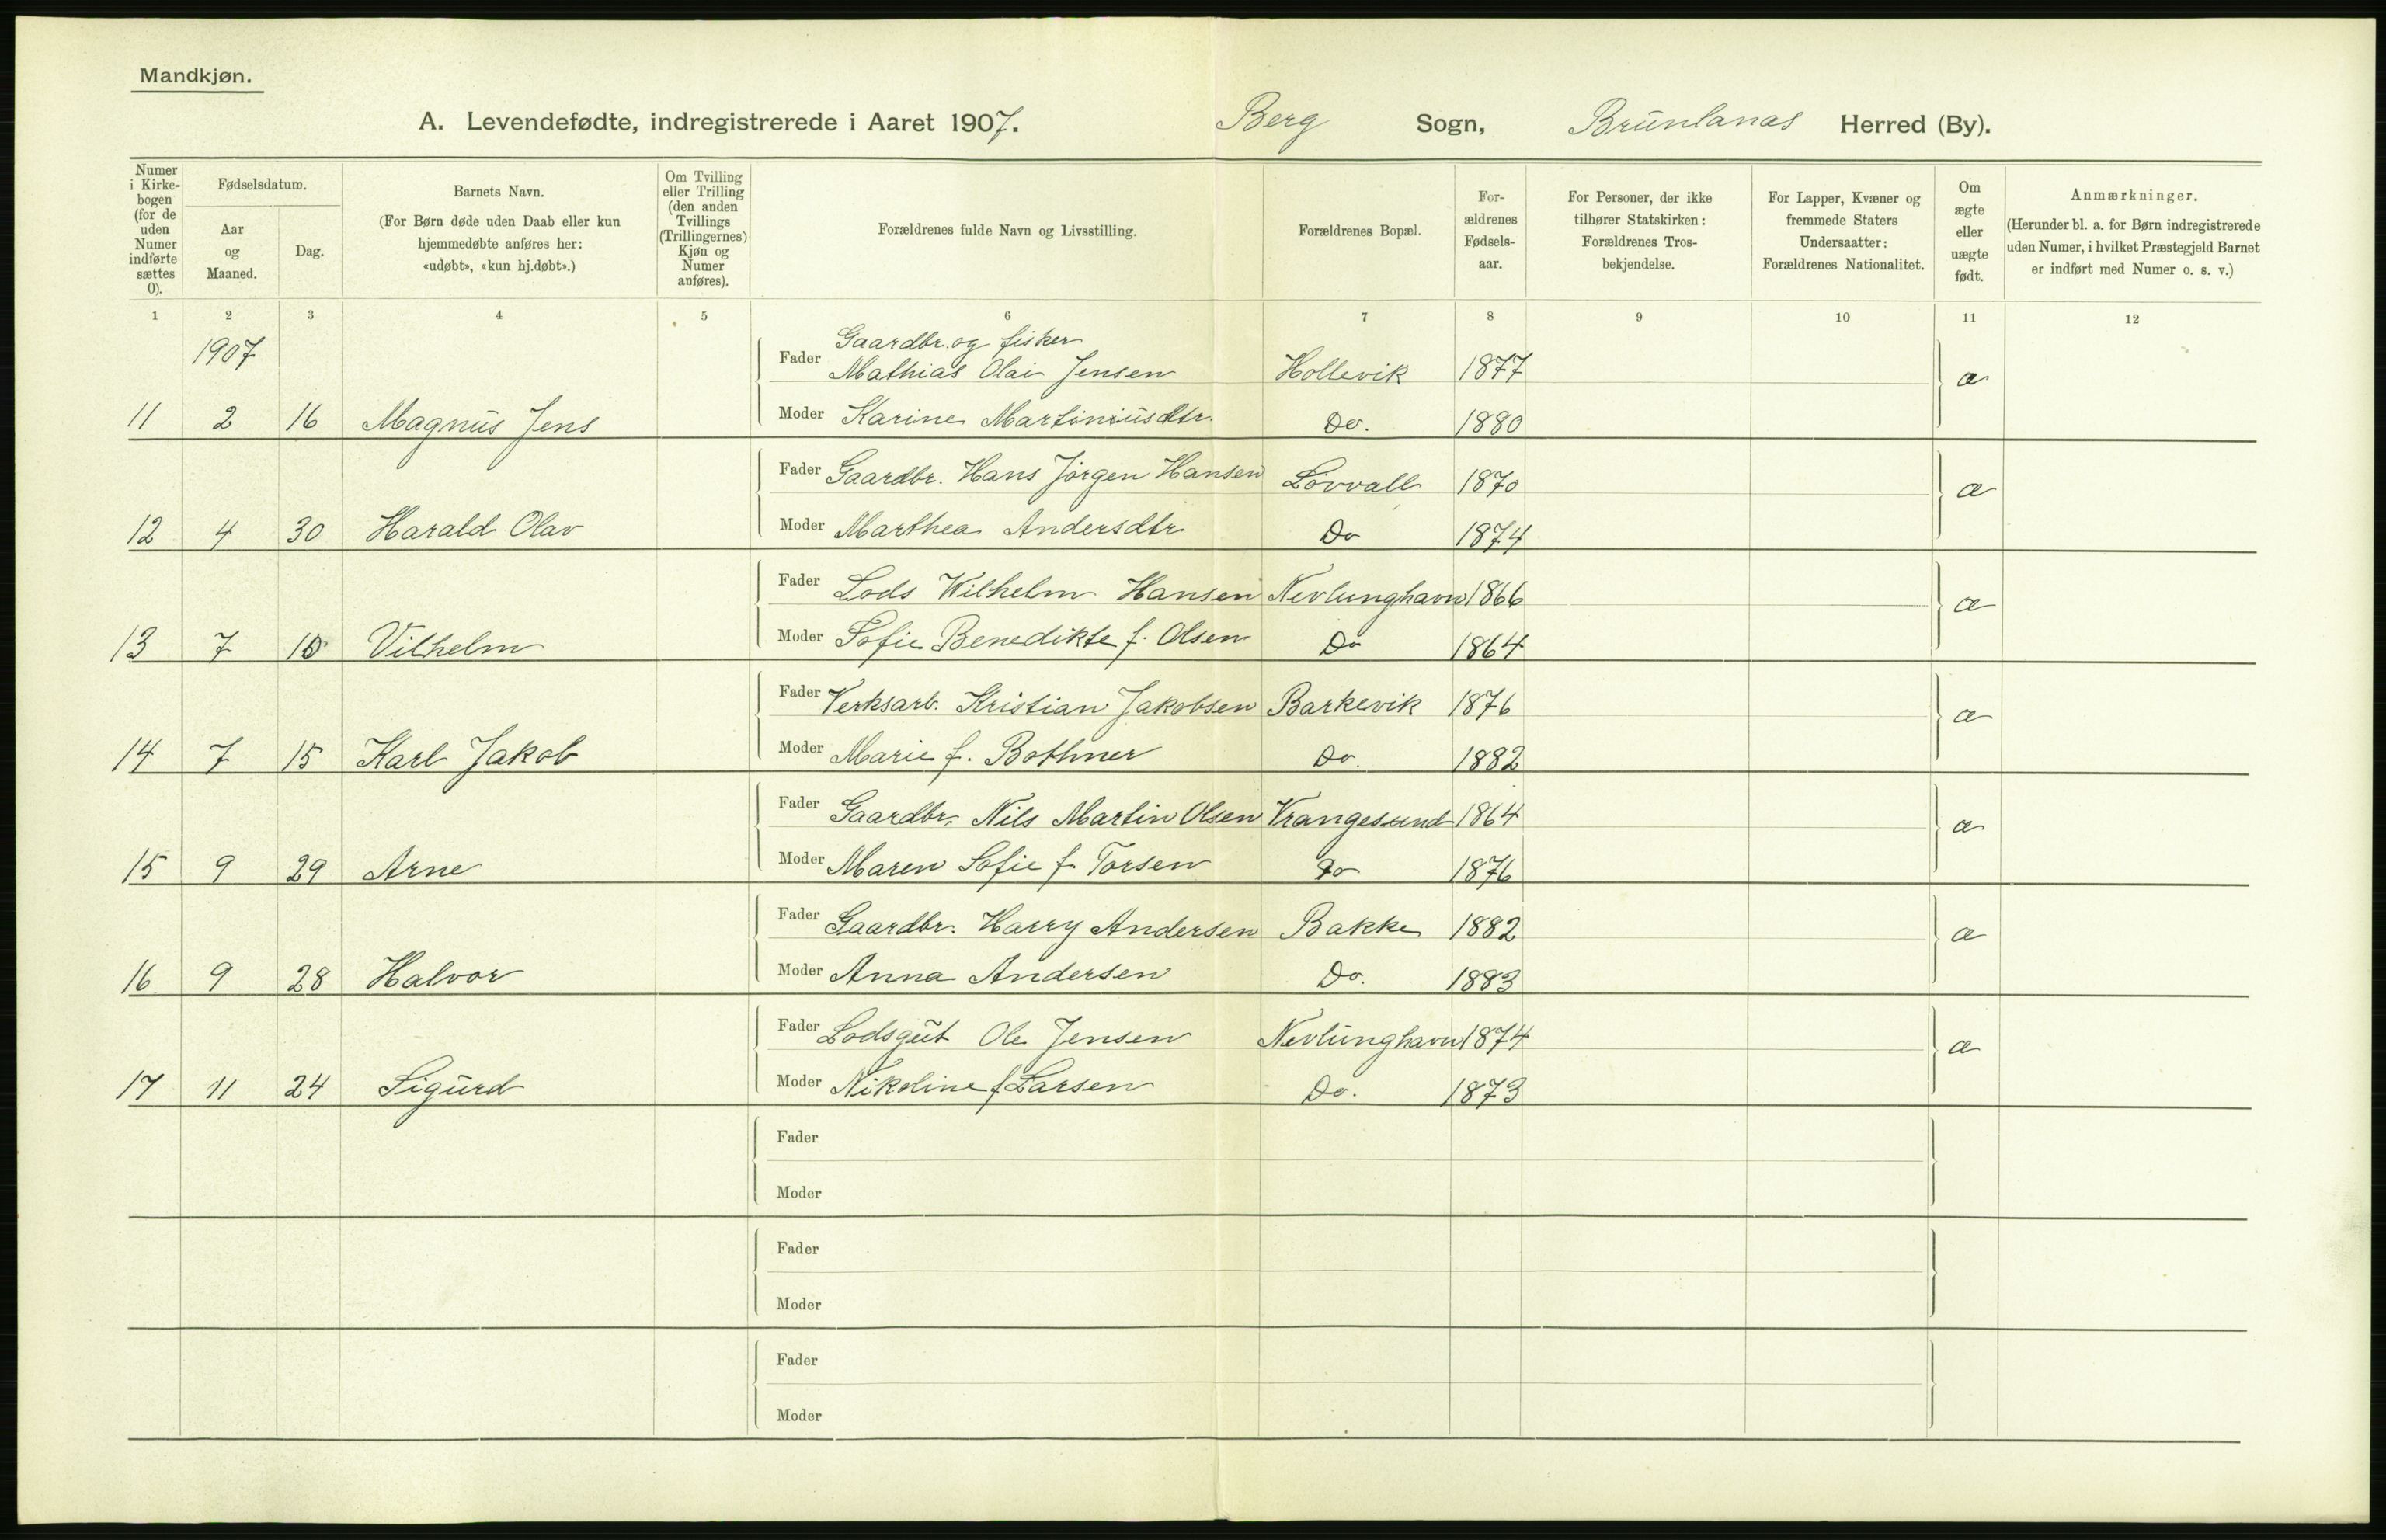 Mandkjøn.
A. Levendefødte, indregistrerede i Aaret 1907. Berg Sogn, Brunlanæs Herred (By).
Numer i Kirke-bogen (for de uden Numer indførte sættes 0).
Fødselsdatum.
Aar og Maaned.
Dag.
Barnets Navn.
(For Børn døde uden Daab eller kun hjemmedøbte anføres her: «udøbt», «kun hj.døbt».)
Om Tvilling eller Trilling (den anden Tvillings (Trillingernes) Kjøn og Numer anføres).
Forældrenes fulde Navn og Livsstilling.
Forældrenes Bopæl.
For-ældrenes Fødsels-aar.
For Personer, der ikke tilhører Statskirken: Forældrenes Tros-bekjendelse.
For Lapper, Kvæner og fremmede Staters Undersaatter: Forældrenes Nationalitet.
Om ægte eller uægte født.
Anmærkninger.
(Herunder bl. a. for Børn indregistrerede uden Numer, i hvilket Præstegjeld Barnet er indført med Numer o. s. v.)
1 2 3 4 5 6 7 8 9 10 11 12
1907
Gaardbr. og fisker
Fader Mathias Olai Jensen Hollevik 1877 æ
11 2 16 Magnus Jens Moder Karine Martiniusdtr. Do. 1880
Fader Gaardbr. Hans Jørgen Hansen Løvvall 1870 æ
12 4 30 Harald Olav Moder Marthea Andersdtr Do 1874
Fader Lods Wilhelm Hansen Nevlunghavn 1866 æ
13 7 10 Vilhelm Moder Sofie Benedikte f. Olsen Do 1864
Fader Verksarb. Kristian Jakobsen Barkevik 1876 æ
14 7 15 Karl Jakob Moder Marie f. Bothner Do. 1882
Fader Gaardbr. Nils Martin Olsen Vrangesund 1864 æ
15 9 29 Arne Moder Maren Sofie f. Torsen Do 1876
Fader Gaardbr. Harry Andersen Bakke 1882 æ
16 9 28 Halvor Moder Anna Andersen Do. 1883
Fader Lodsgut Ole Jensen Nevlunghavn 1874 æ
17 11 24 Sigurd Moder Nikoline f. Larsen Do. 1873
Fader
Moder
Fader
Moder
Fader
Moder